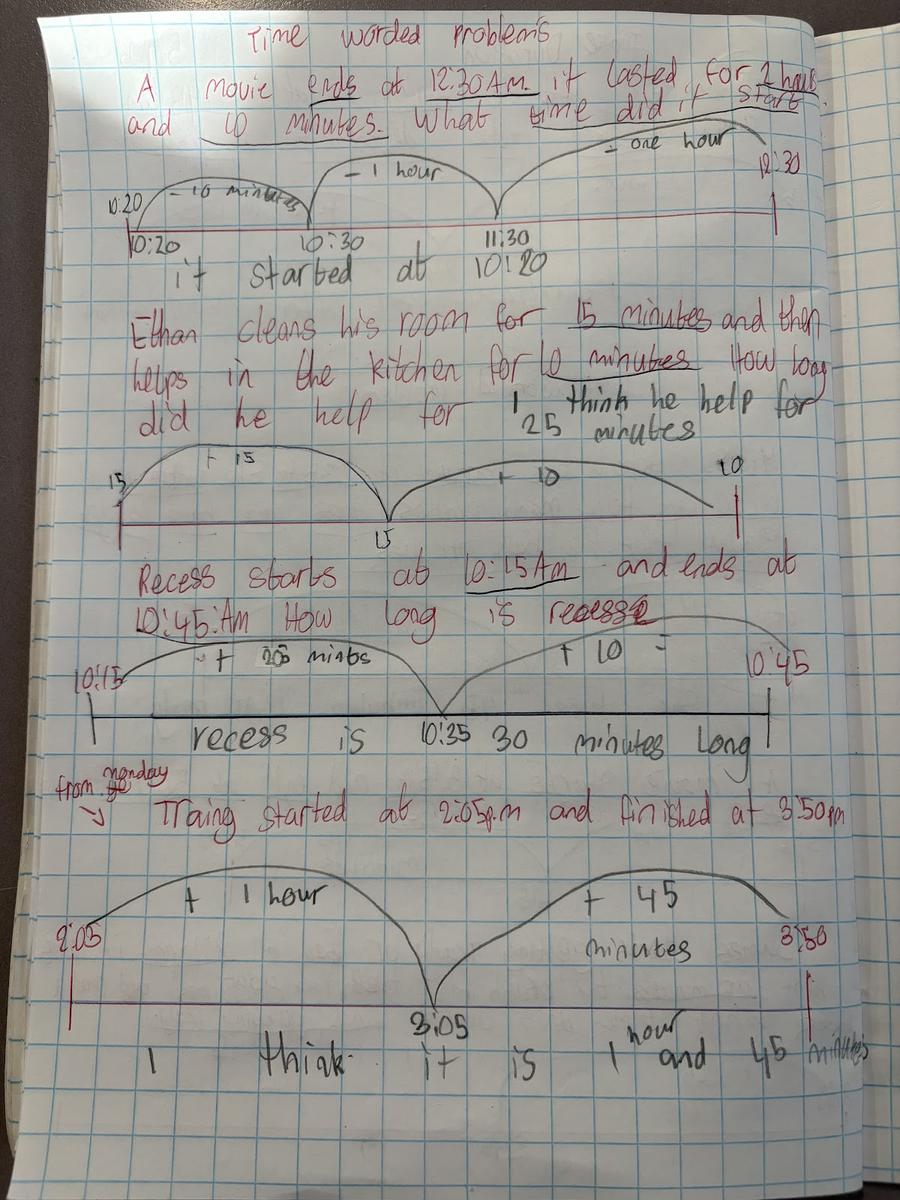 Time worded problems
A movie ends at 12:30AM it lasted for 2 hour
and 10 minutes. What time did it start
- 10 minutes - 1 hour - one hour
10:20 12:30
10:20 10:30 11:30
it started at 10:20
Ethan cleans his room for 15 minutes and then
helps in the kitchen for 10 minutes How long
did he help for I think he help for
25 minutes
15 + 15 + 10 10
15
Recess starts at 10:15Am and ends at
10:45:Am How long is recess
10:15 + 20 mints + 10 = 10:45
recess is 10:35 30 minutes long
from monday
Traing started at 2:05p.m and finished at 3:50pm
+ 1 hour + 45
2:05 minutes 3:50
3:05
I think it is 1 hour and 45 minutes